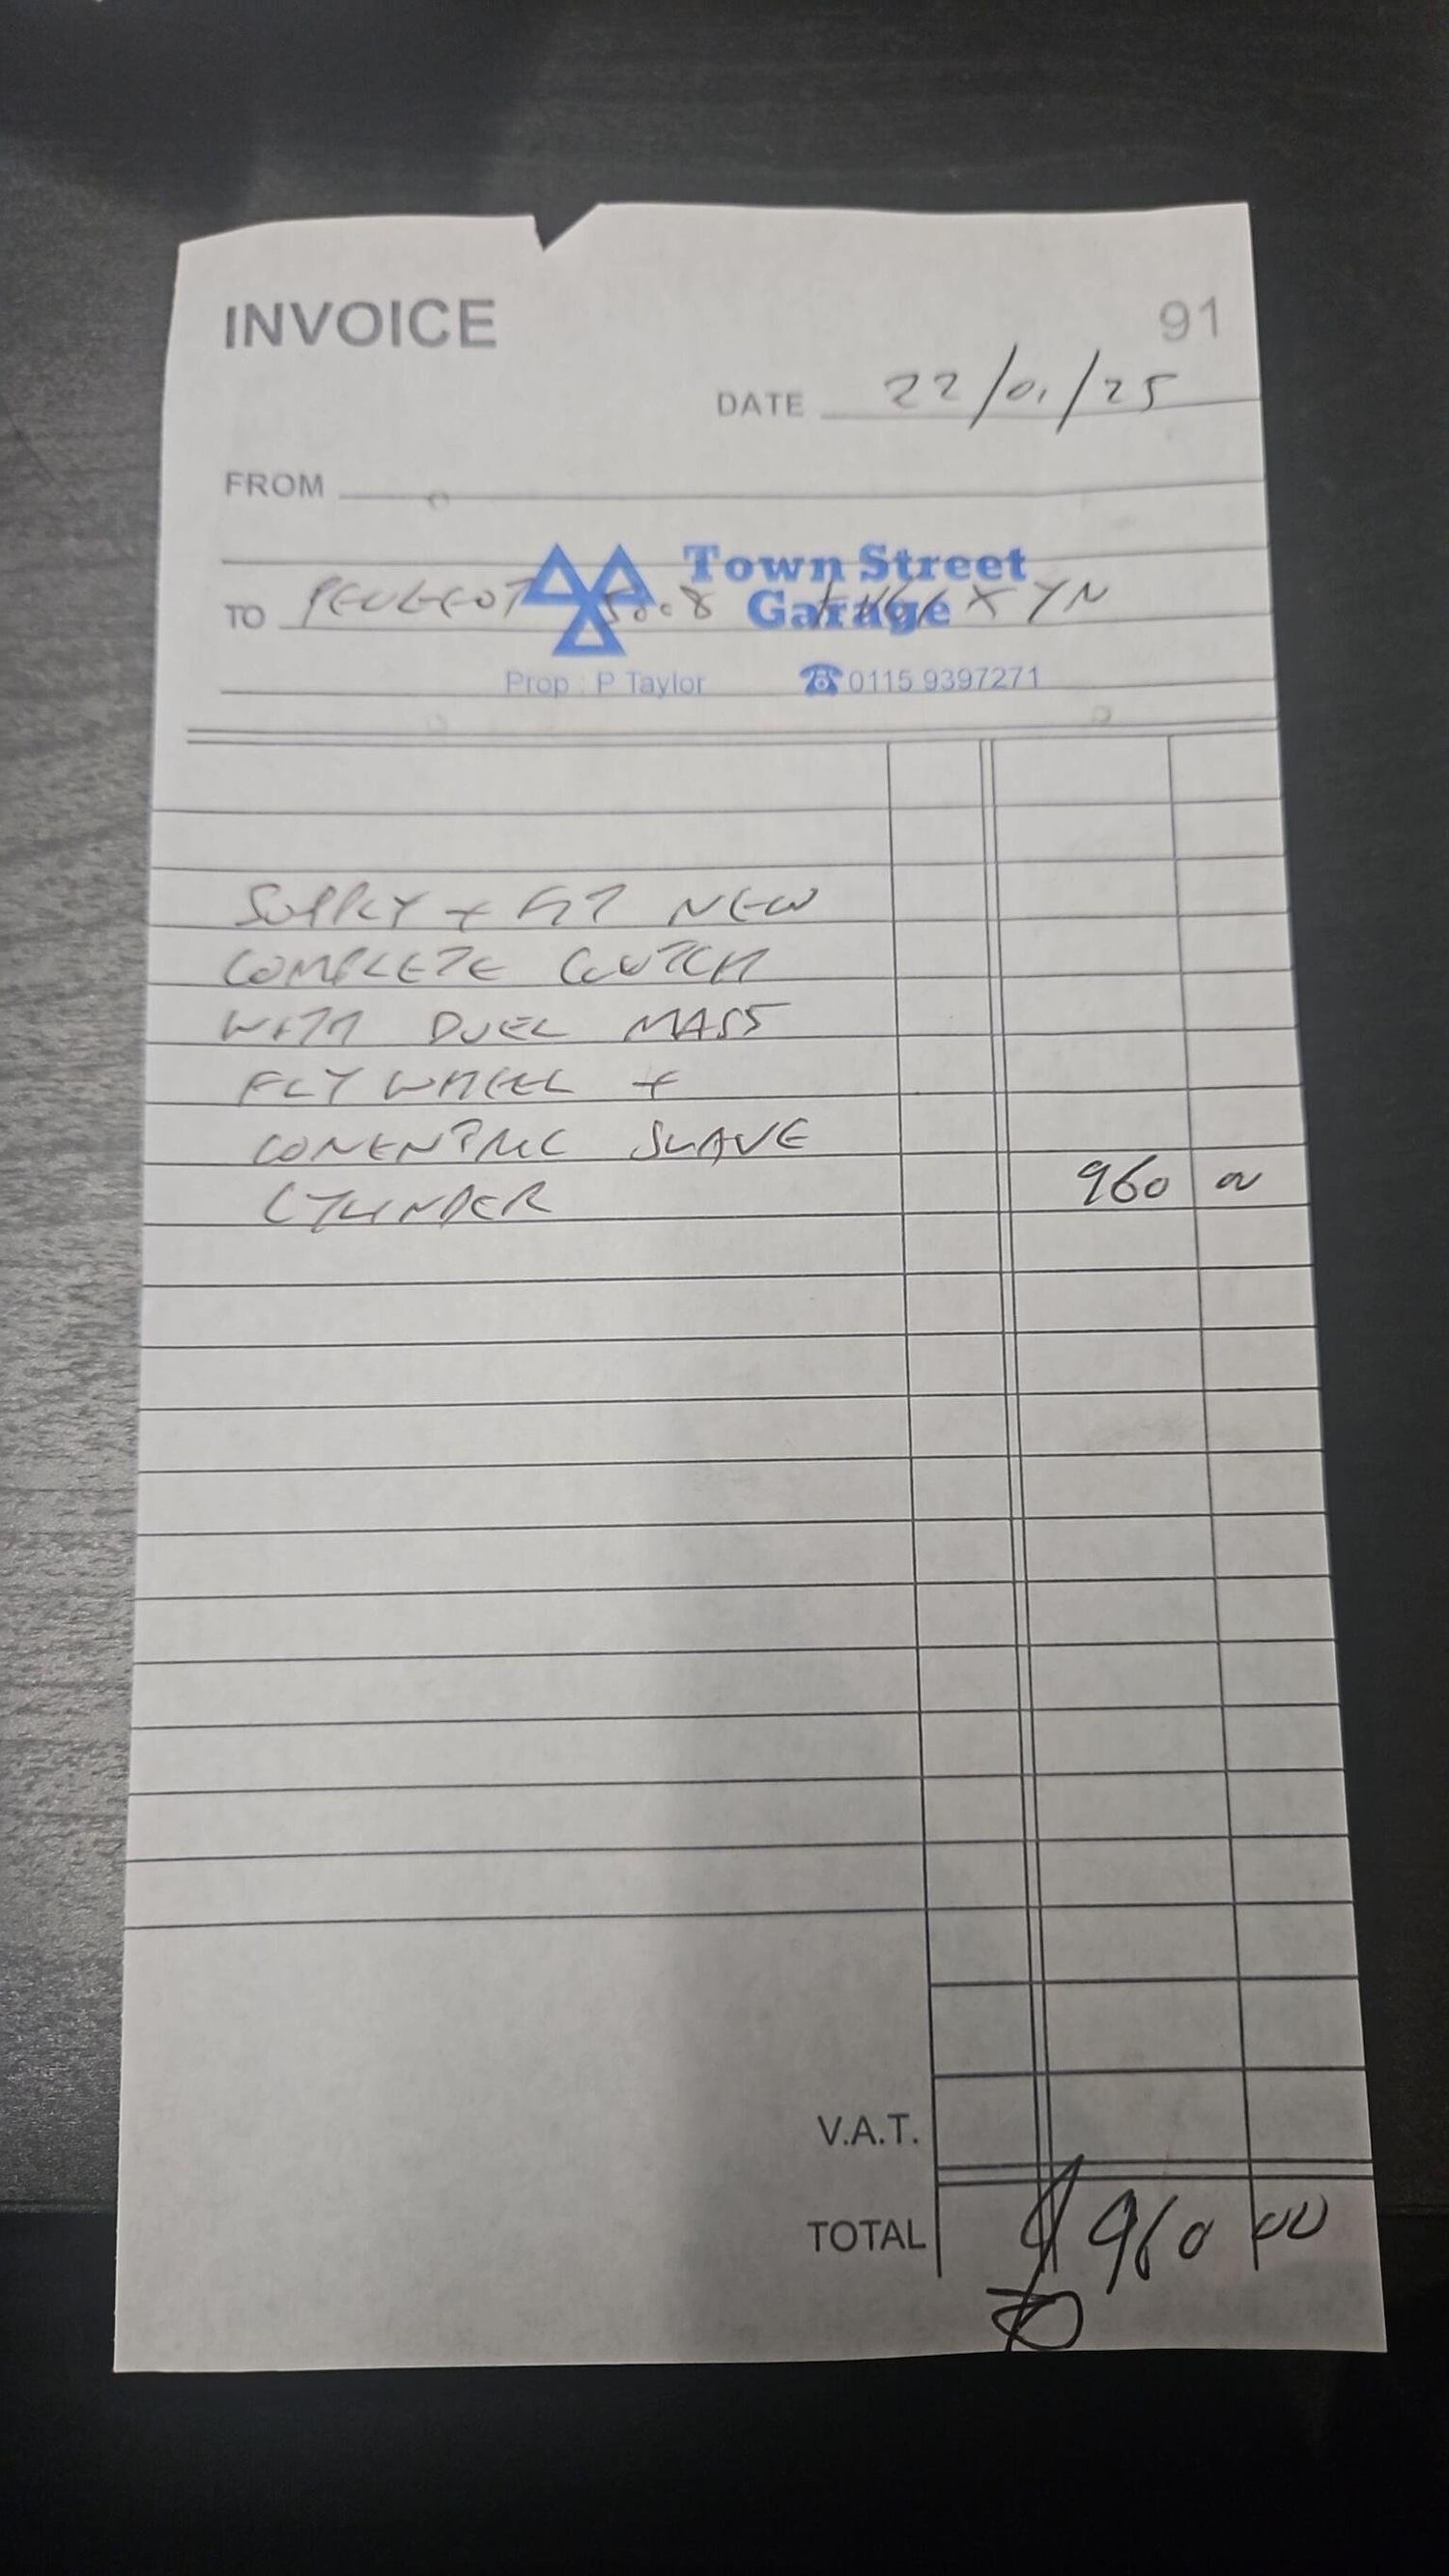 INVOICE
91
DATE 22/01/25
FROM
Town Street
Garage
TO PEUGEOT 5008 XYN
Prop : P Taylor ☎ 0115 9397271
SUPPLY + FIT NEW
COMPLETE CLUTCH
WITH DUEL MASS
FLY WHEEL +
CONENTRIC SLAVE
CYLINDER 960 00
V.A.T.
TOTAL 960 00